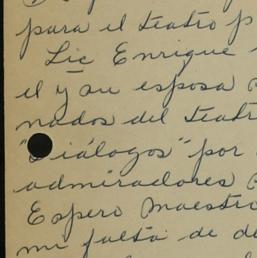 para el teatro p
Lic Enrique
el y su esposa
nados del teatr
"Diálogos" por
admiradores
Espero Maestro
mi falta de de